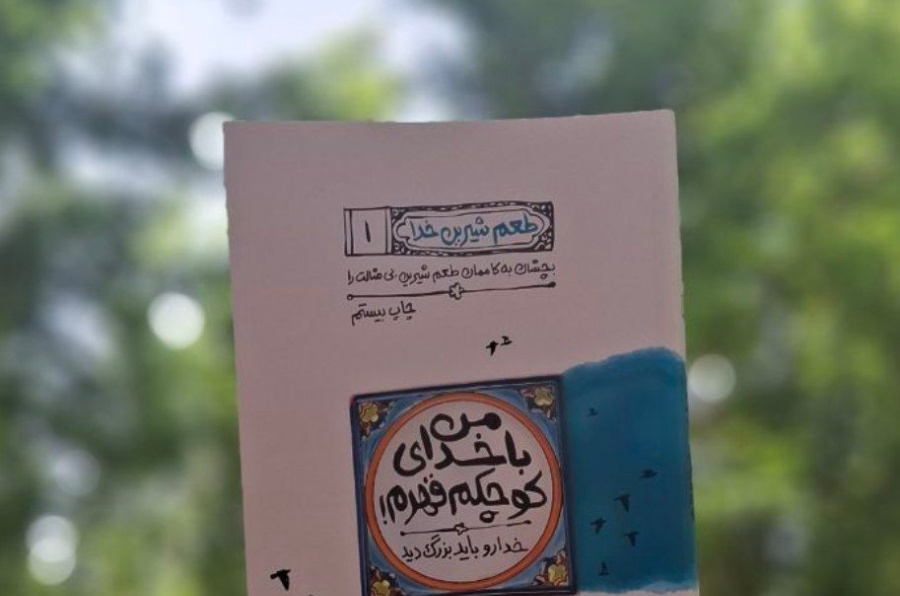 طعم شیرین خدا
۱
بچشان به کاممان طعم شیرین بی مثالت را
چاپ بیستم
من
با خدای
کوچکم قهرم!
خدا رو باید بزرگ دید